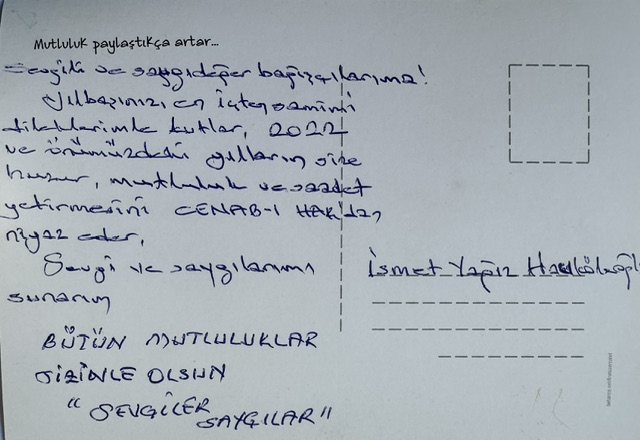 Mutluluk paylaştıkça artar...
Sevgili ve saygıdeğer bağışçılarıma!
Yılbaşınızı, en içten samimi
dileklerimle kutlar, 2022
ve önümüzdeki yılların size
huzur, mutluluk ve saadet
getirmesini CENAB-I HAK'dan
niyaz eder,
Sevgi ve saygılarımı
sunarım
BÜTÜN MUTLULUKLAR
SİZİNLE OLSUN
"SEVGİLER
SAYGILAR"
İsmet Yağız